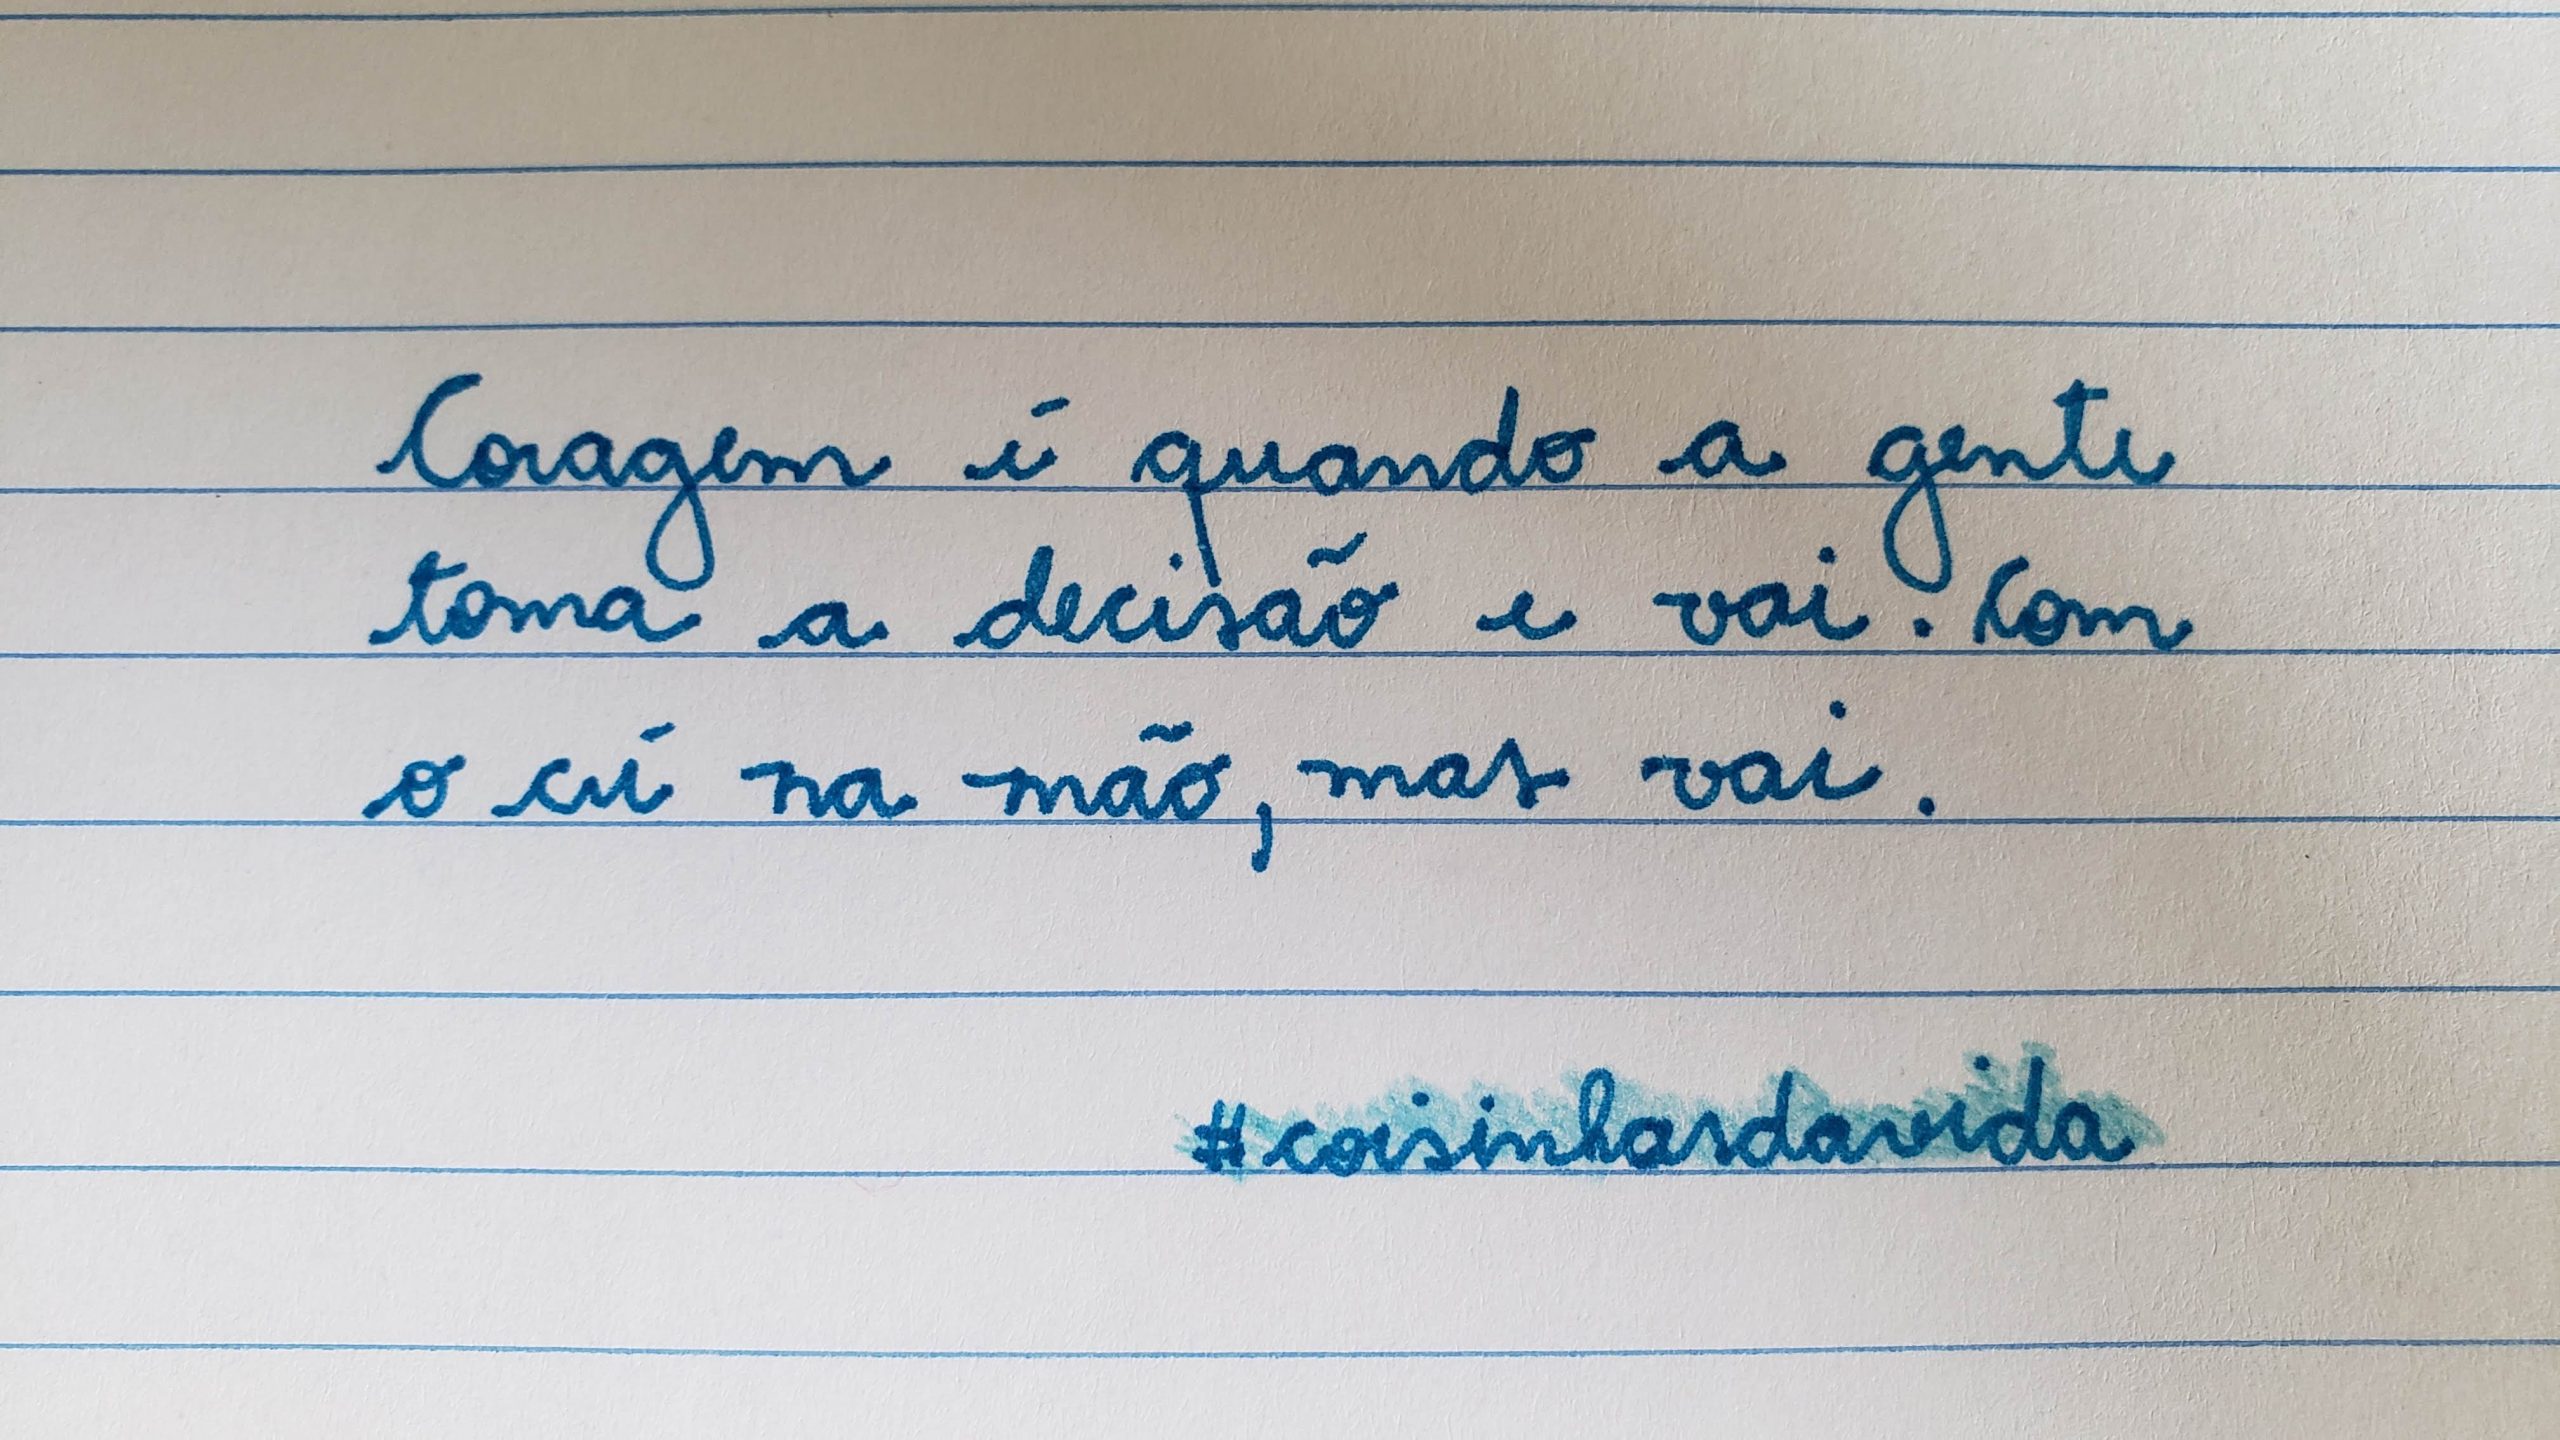 Coragem é quando a gente
toma a decisão e vai. Com
o cú na mão, mas vai.
#coisinhasdavida